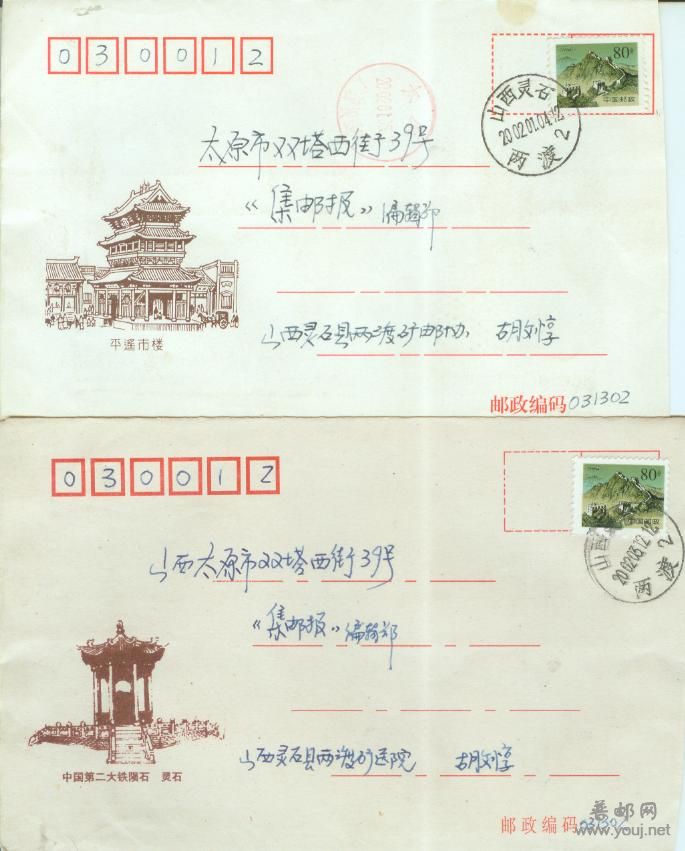 030012
80分
中国邮政
山西灵石
2002.01.04.12
两渡 2
太原市双塔西街39号
《集邮报》编辑部
平遥市楼
山西灵石县两渡矿邮协 胡刘惇
邮政编码031302
030012
80分
中国邮政
山西
2002.03.12.12
两渡 2
山西太原市双塔西街39号
《集邮报》编辑部
中国第二大铁陨石 灵石
山西灵石县两渡矿医院 胡刘惇
邮政编码
普邮网
www.youj.net